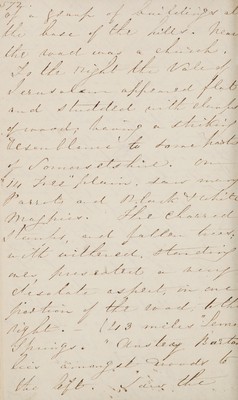 of a group of buildings at
the base of the hills. Near
the road was a church.
To the right the Vale of
Jerusalem appeared flat
and studded with clumps
of wood; bearing a striking
resemblance to some parts
of Somersetshire. On
plain, saw many
Parrots and Black & White
Magpies. The charred
stumps, and fallen trees,
with withered, standing
ones, presented a very
desolate aspect, in one
portion of the road, to the
right. (43 miles)
Springs.
lies amongst woods to
the left. the